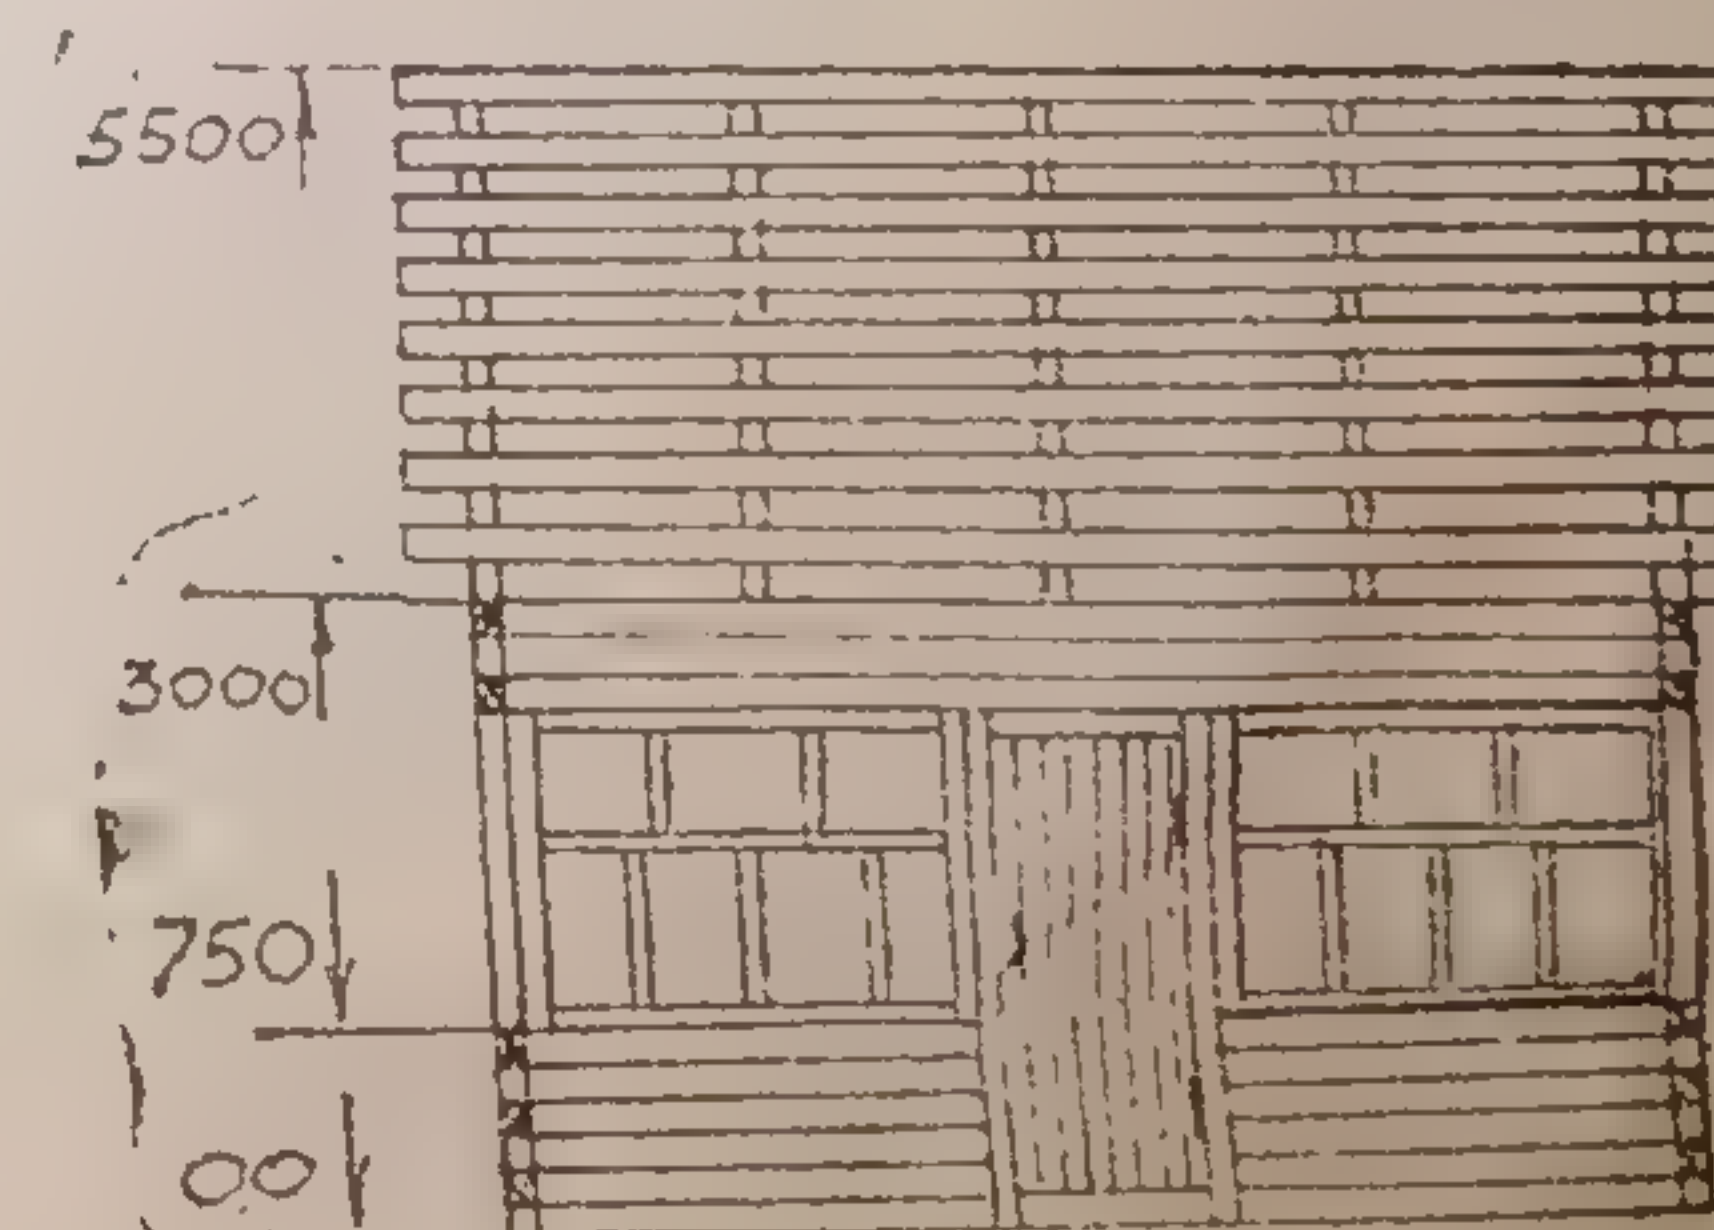 5500
3000
750
00